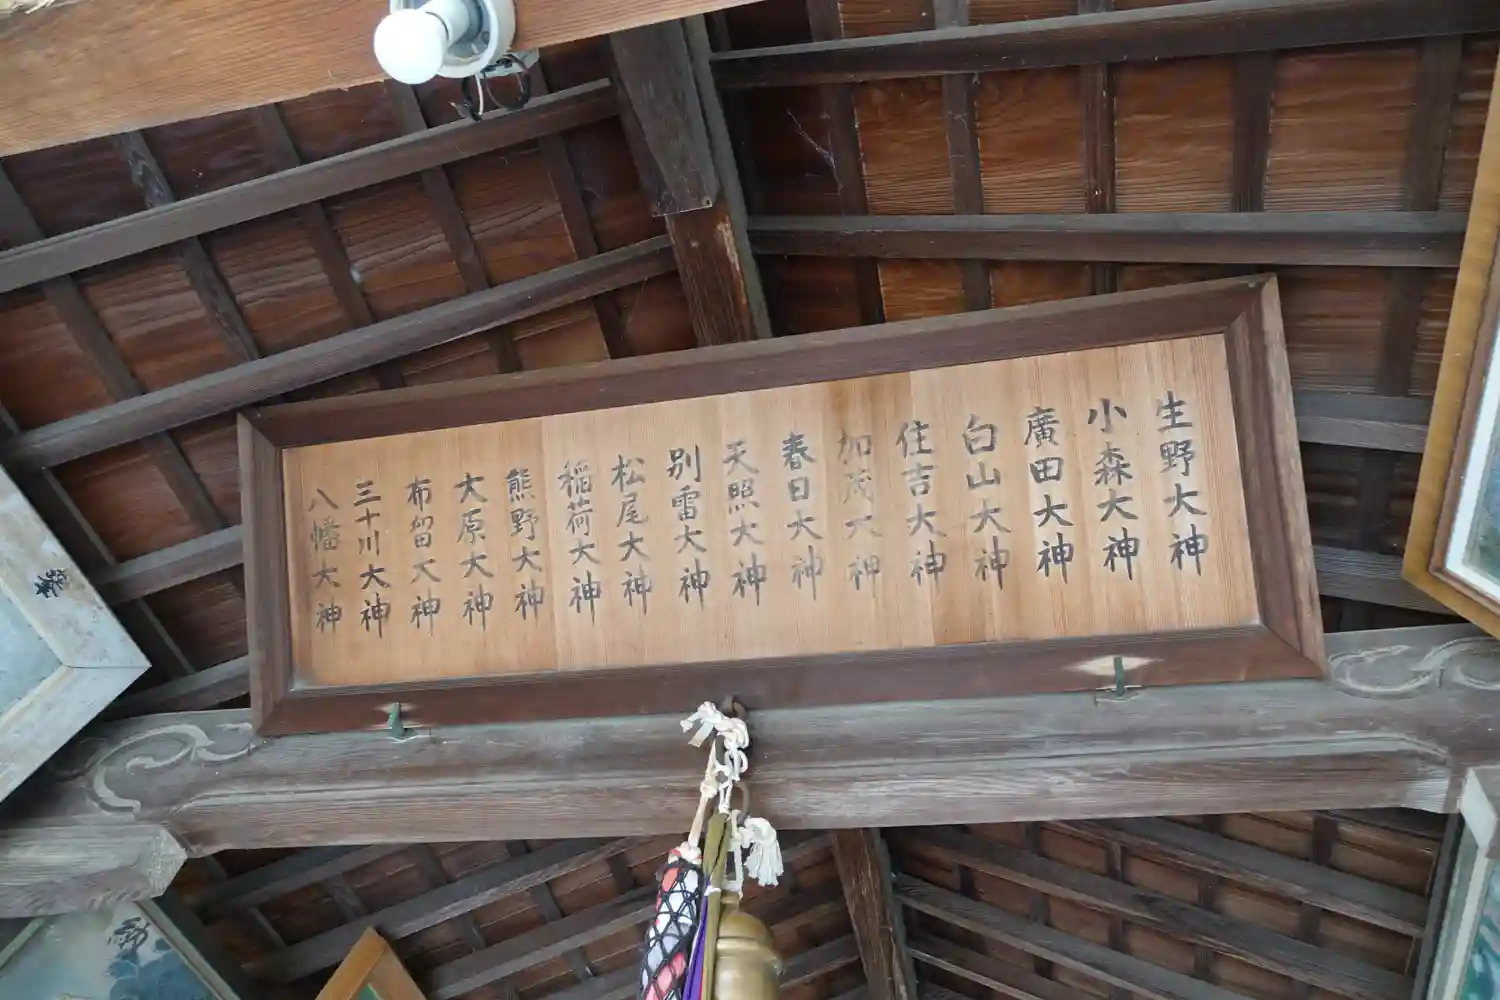 生野大神
小森大神
廣田大神
白山大神
住吉大神
加茂大神
春日大神
天照大神
別雷大神
松尾大神
稲荷大神
熊野大神
大原大神
布留大神
三十川大神
八幡大神